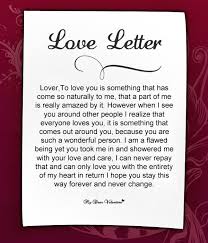 Love Letter
Lover,To love you is something that has
come so naturally to me, that a part of me
is really amazed by it. However when I see
you around other people I realize that
everyone loves you, it is something that
comes out around you, because you are
such a wonderful person. I am a flawed
being yet you took me in and showered me
with your love and care, I can never repay
that and can only love you with the entirety
of my heart in return I hope you stay this
way forever and never change.
My Dear Valentine